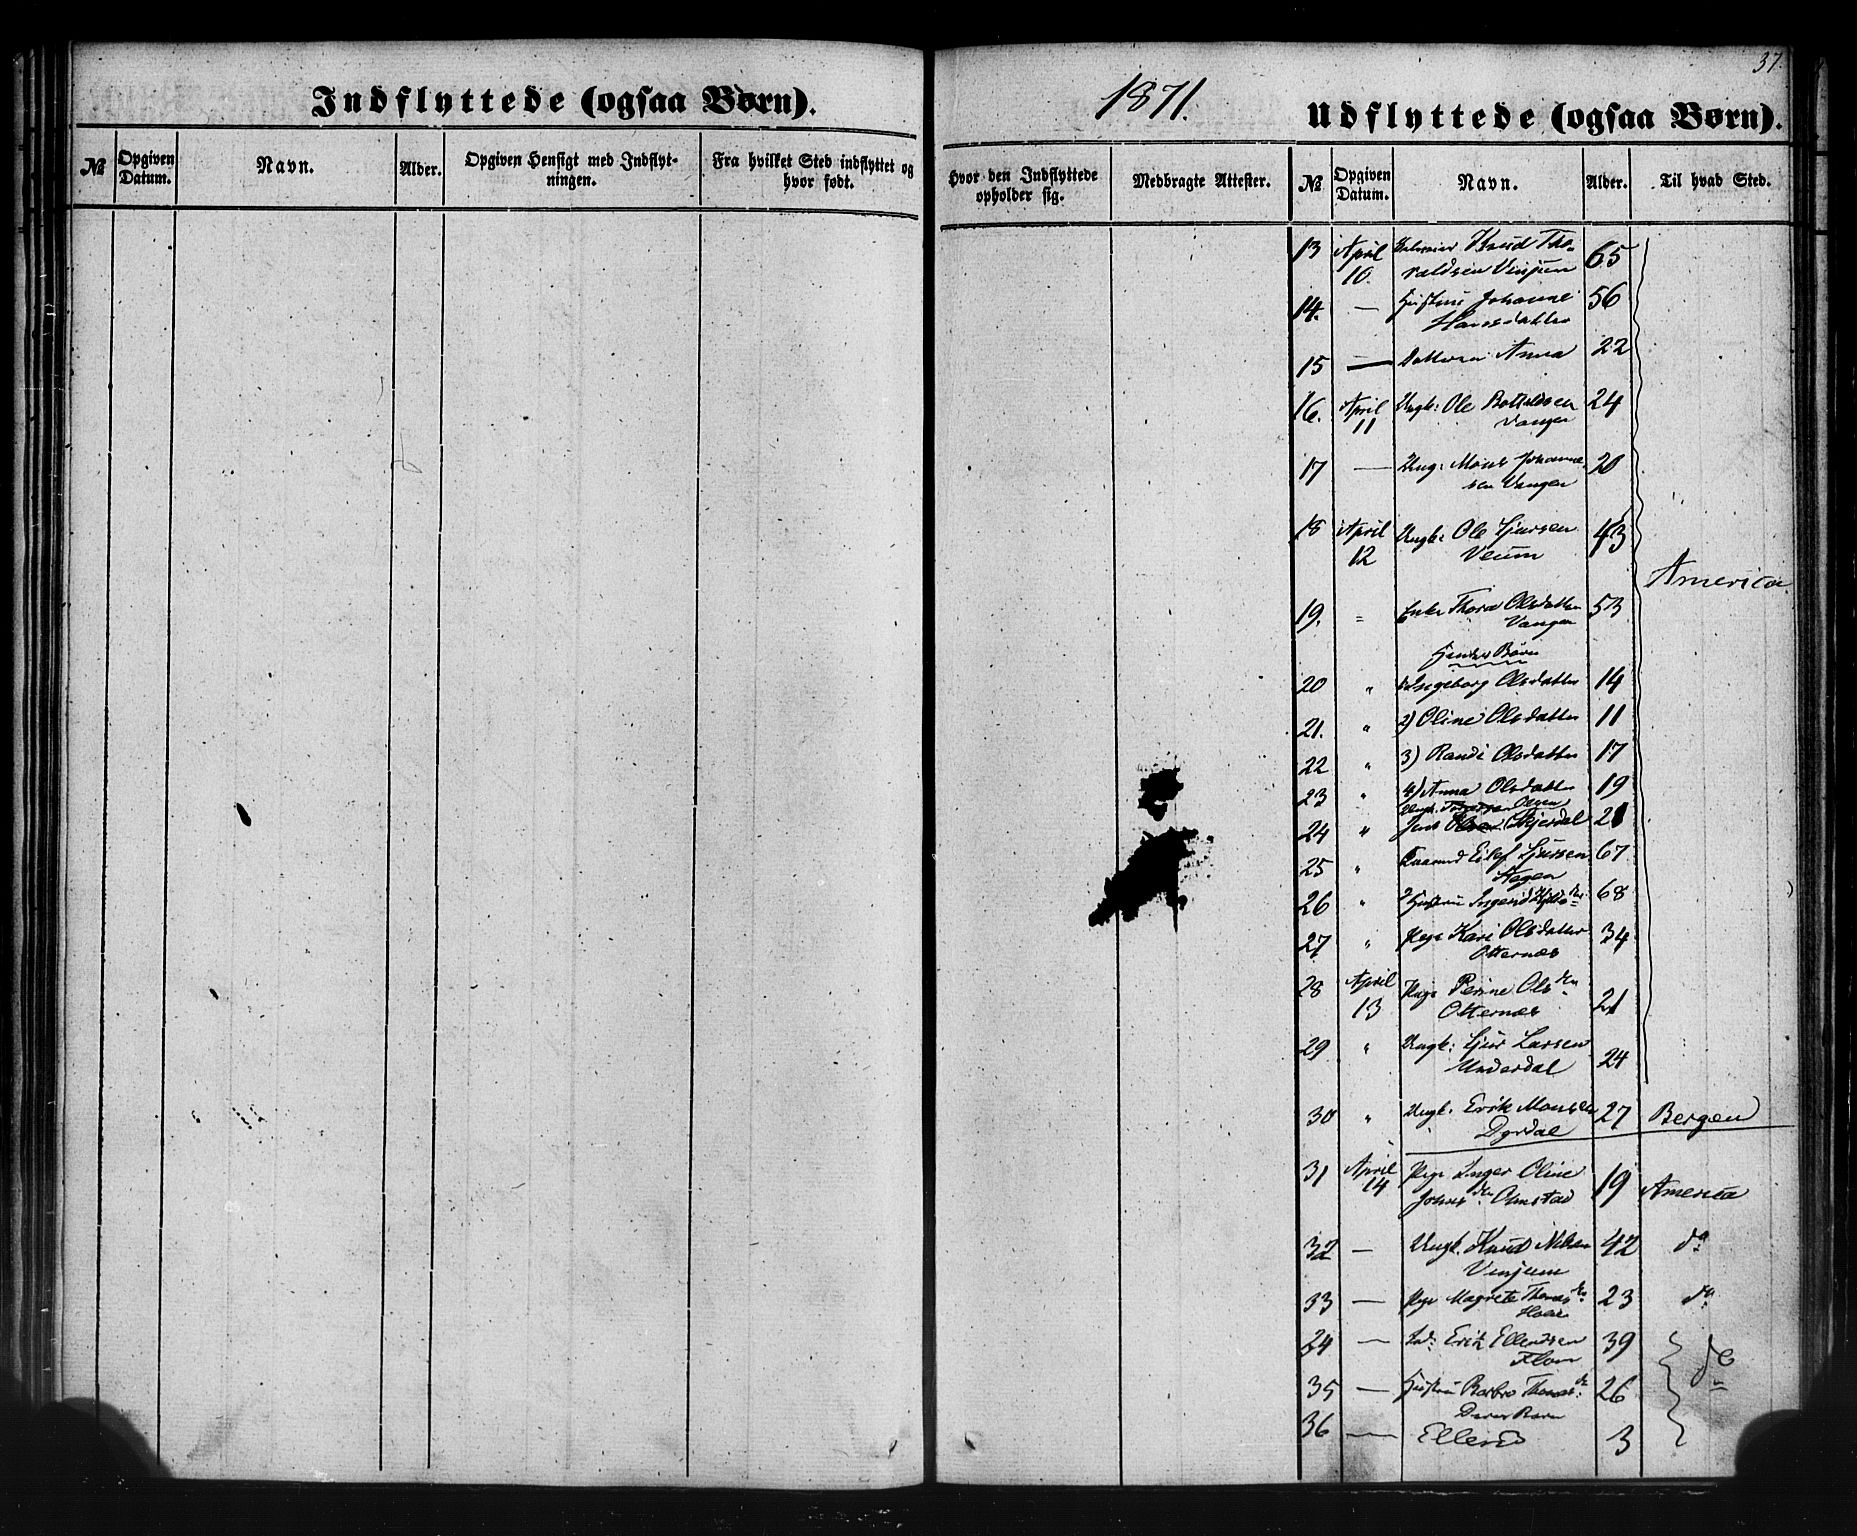 37.
Indflyttede (ogsaa Børn).
1871.
Udflyttede (ogsaa Børn).
№ Opgiven Datum. Navn. Alder. Opgiven Hensigt med Indflyt-ningen. Fra hvilket Sted indflyttet og hvor født.
Hvor den Indflyttede opholder sig. Medbragte Attester. № Opgiven Datum. Navn. Alder. Til hvad Sted.
13 April 10. Knud Tho-
raldsen Vinjum 65
14. — Hustru Johanne 56
Hansdatter
15 — Datteren Anna 22
16. April 11 Ungk: Ole Botholdsen 24
Vangen
17 — Ung: Mons Johanne 20
sen Vangen
18 April 12 Ungk: Ole Sjursen 43
Veum
America
19. " Enke Thora Olsdatter 53
Vangen
Hendes Børn
20 " 1) Ingeborg Olsdatter 14
21. " 2) Oline Olsdatter 11
22 " 3) Randi Olsdatter 17
23 " 4) Anna Olsdatter 19
Ungk. Olsen
24 " Jens Skjerdal 21
25 " Eilef Sjursen 67
26 " Hustru Ingerid 68
27 " Pige Kari Olsdatter 34
Otternæs
28 April 13 Pige Perine Olsdtr 21
Otternæs
29 " Ungk: Sjur Larsen 24
Underdal
30 " Ungk. Erik Monsen 27 Bergen
Dyrdal
31 April 14 Pige Inger Oline
Johns dtr Onstad 19 America
32 — Ungk. Knud Nilsen 42 do
Vinjum
33 — Pige Magrete Thomasdtr 23 do
34 — Erik Ellendsen 39 do
Flom
35 — Hustru Barbro Thomasdr: 26
Deres Barn
36 — Ellend 3